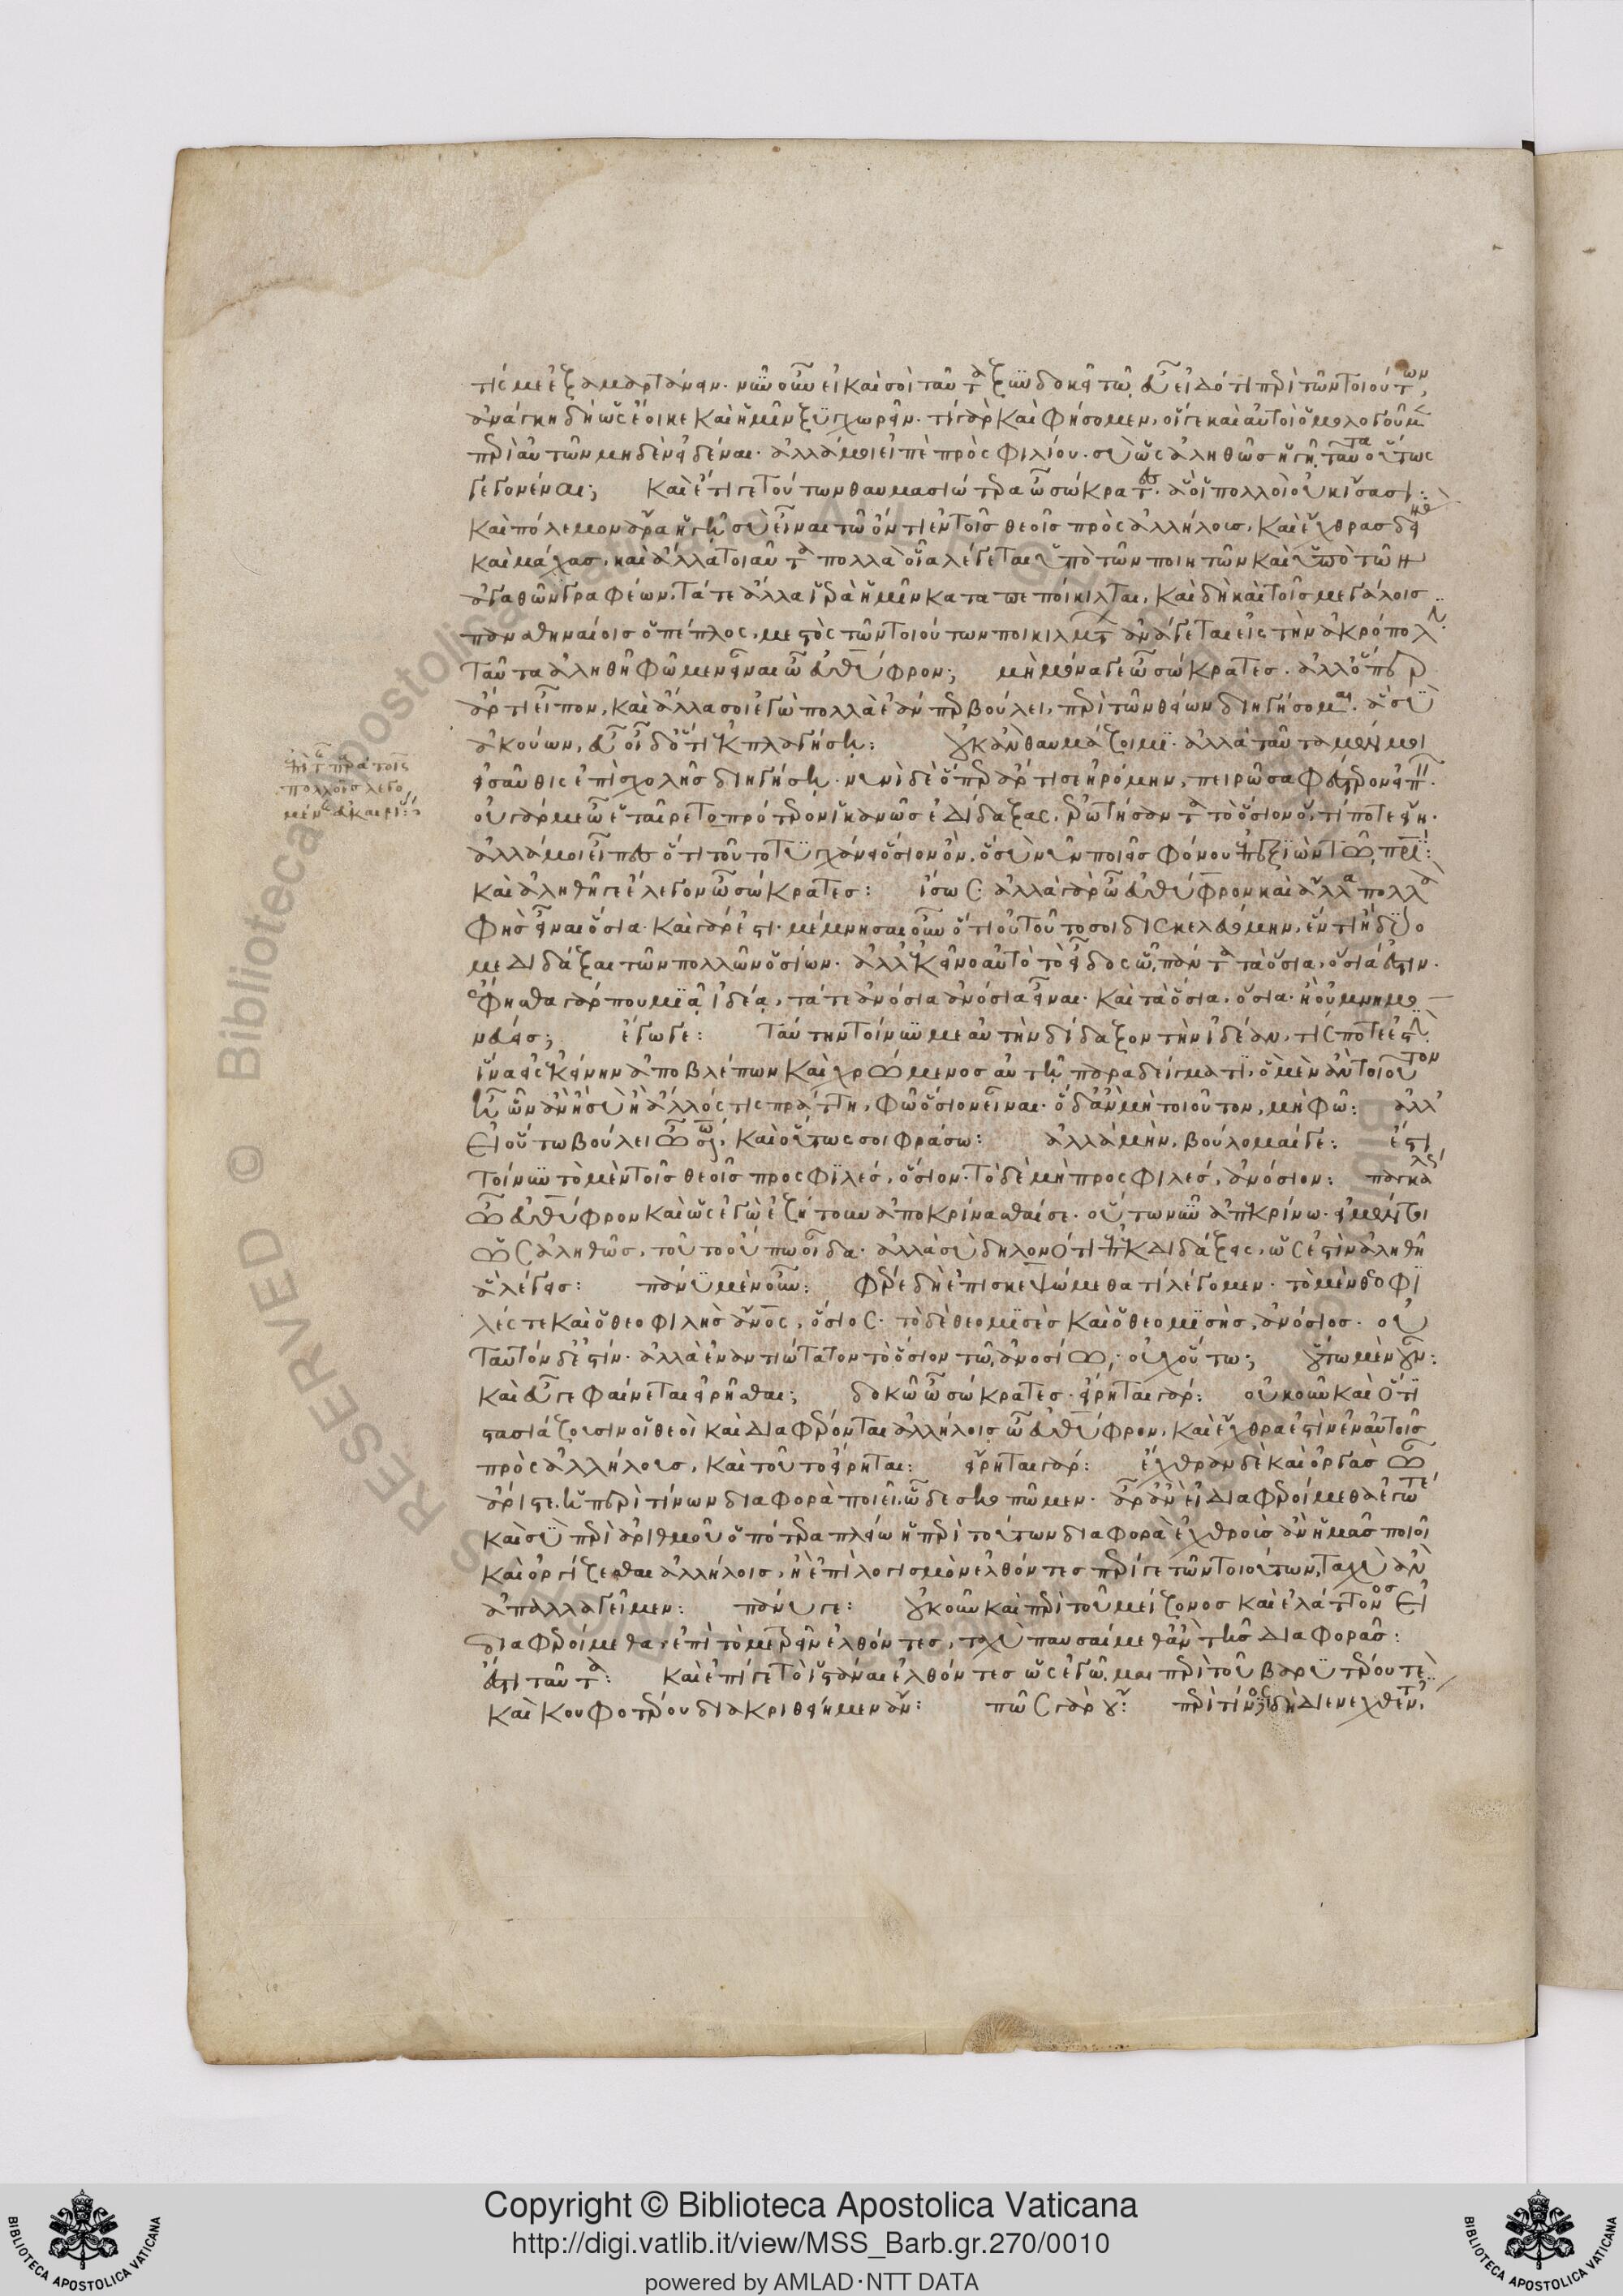 τίς με ἐξαμαρτάνειν. νῦν οὖν εἰ καὶ σοὶ ταῦτα ξυνδοκεῖ τῷ εὖ εἰδότι περὶ τῶν τοιούτων,
ἀνάγκη δὴ ὡς ἔοικε καὶ ἡμῖν ξυγχωρεῖν. τί γὰρ καὶ φήσομεν, οἵ γε καὶ αὐτοὶ ὁμολογοῦμεν
περὶ αὐτῶν μηδὲν εἰδέναι. ἀλλά μοι εἰπὲ πρὸς φιλίου. σὺ ὡς ἀληθῶς ἡγῇ ταῦτα οὕτως
γεγονέναι; καὶ ἔτι γε τούτων θαυμασιώτερα ὦ σώκρατες. ἃ οἱ πολλοὶ οὐκ ἴσασι:
καὶ πόλεμον ἆρα ἡγῇ σὺ εἶναι τῷ ὄντι ἐν τοῖς θεοῖς πρὸς ἀλλήλους, καὶ ἔχθρας δεινὰς
καὶ μάχας, καὶ ἄλλα τοιαῦτα πολλὰ οἷα λέγεται ὑπὸ τῶν ποιητῶν καὶ ὑπὸ τῶν
ἀγαθῶν γραφέων, τά τε ἄλλα ἱερὰ ἡμῖν καταπεποίκιλται, καὶ δὴ καὶ τοῖς μεγάλοις
παναθηναίοις ὁ πέπλος, μεστὸς τῶν τοιούτων ποικιλμάτων ἀνάγεται εἰς τὴν ἀκρόπολιν.
ταῦτα ἀληθῆ φῶμεν εἶναι ὦ εὐθύφρον; μὴ μόνα γε ὦ σώκρατες. ἀλλ' ὅπερ
ἄρτι εἶπον, καὶ ἄλλα σοι ἐγὼ πολλὰ ἐάν περ βούλει, περὶ τῶν θείων διηγήσομαι. ἃ σὺ
ἀκούων, εὖ οἶδ' ὅτι ἐκπλαγήσῃ: οὐκ ἂν θαυμάζοιμι. ἀλλὰ ταῦτα μέν μοι
εἰσαῦθις ἐπὶ σχολῆς διηγήσῃ. νυνὶ δὲ ὅπερ ἄρτι σε ἠρόμην, πειρῶ σαφέστερον εἰπεῖν.
οὐ γάρ με ὦ ἑταῖρε τὸ πρότερον ἱκανῶς ἐδίδαξας, ἐρωτήσαντα τὸ ὅσιον ὅ,τι ποτ' εἴη.
ἀλλά μοι εἶπες ὅτι τοῦτο τυγχάνει ὅσιον ὄν, ὃ σὺ νῦν ποιεῖς φόνου ἐπεξιὼν τῷ πατρί:
καὶ ἀληθῆ γε ἔλεγον ὦ σώκρατες: ἴσως. ἀλλὰ γὰρ ὦ εὐθύφρον καὶ ἄλλα πολλὰ
φῂς εἶναι ὅσια. καὶ γάρ ἐστι. μέμνησαι οὖν ὅτι οὐ τοῦτό σοι διεκελευόμην, ἕν τι ἢ δύο
με διδάξαι τῶν πολλῶν ὁσίων. ἀλλ' ἐκεῖνο αὐτὸ τὸ εἶδος ᾧ πάντα τὰ ὅσια, ὅσιά ἐστιν.
ἔφησθα γάρ που μιᾷ ἰδέᾳ, τά τε ἀνόσια ἀνόσια εἶναι. καὶ τὰ ὅσια, ὅσια. ἢ οὐ μνημο
νεύεις; ἔγωγε: ταύτην τοίνυν με αὐτὴν δίδαξον τὴν ἰδέαν, τίς ποτέ ἐστιν.
ἵνα εἰς ἐκείνην ἀποβλέπων καὶ χρώμενος αὐτῇ παραδείγματι, ὃ μὲν ἂν τοιοῦτον
ᾖ ὧν ἂν ἢ σὺ ἢ ἄλλός τις πράττῃ, φῶ ὅσιον εἶναι. ὃ δ' ἂν μὴ τοιοῦτον, μὴ φῶ: ἀλλ'
εἰ οὕτω βούλει ὦ σώκρατες, καὶ οὕτως σοι φράσω: ἀλλὰ μὴν, βούλομαί γε: ἔστι
τοίνυν τὸ μὲν τοῖς θεοῖς προσφιλές, ὅσιον. τὸ δὲ μὴ προσφιλές, ἀνόσιον: παγκάλως
ὦ εὐθύφρον καὶ ὡς ἐγὼ ἐζήτουν ἀποκρίνασθαί σε. οὕτω νῦν ἀπεκρίνω. εἰ μέντοι
ὡς ἀληθῶς, τοῦτο οὔπω οἶδα. ἀλλὰ σὺ δηλονότι ἐπεκδιδάξεις, ὡς ἔστιν ἀληθῆ
ἃ λέγεις: πάνυ μὲν οὖν: φέρε δὴ ἐπισκεψώμεθα τί λέγομεν. τὸ μὲν θεοφι
λές τε καὶ ὁ θεοφιλὴς ἄνθρωπος, ὅσιος. τὸ δὲ θεομισὲς καὶ ὁ θεομισὴς, ἀνόσιος. οὐ
ταὐτόν δ' ἐστίν. ἀλλὰ ἐναντιώτατον τὸ ὅσιον τῷ ἀνοσίῳ. οὐχ οὕτω; οὕτω μὲν οὖν:
καὶ εὖ γε φαίνεται εἰρῆσθαι; δοκῶ ὦ σώκρατες. εἴρηται γάρ: οὐκοῦν καὶ ὅτι
στασιάζουσιν οἱ θεοὶ καὶ διαφέρονται ἀλλήλοις ὦ εὐθύφρον, καὶ ἔχθρα ἐστὶν ἐν αὐτοῖς
πρὸς ἀλλήλους, καὶ τοῦτο εἴρηται: εἴρηται γάρ: ἔχθραν δὲ καὶ ὀργὰς ὦ
ἄριστε, ἡ περὶ τίνων διαφορὰ ποιεῖ. ὧδε σκοπῶμεν. ἆρ' ἂν εἰ διαφεροίμεθα ἐγώ τε
καὶ σὺ περὶ ἀριθμοῦ ὁπότερα πλείω ἡ περὶ τούτων διαφορὰ ἐχθροὺς ἂν ἡμᾶς ποιοῖ
καὶ ὀργίζεσθαι ἀλλήλοις, ἢ ἐπὶ λογισμὸν ἐλθόντες περί γε τῶν τοιούτων, ταχὺ ἂν
ἀπαλλαγεῖμεν: πάνυ γε: οὐκοῦν καὶ περὶ τοῦ μείζονος καὶ ἐλάττονος εἰ
διαφεροίμεθα, ἐπὶ τὸ μετρεῖν ἐλθόντες, ταχὺ παυσαίμεθ' ἂν τῆς διαφορᾶς:
ἔστι ταῦτα: καὶ ἐπί γε τὸ ἱστάναι ἐλθόντες ὡς ἐγᾦμαι περὶ τοῦ βαρυτέρου τε
καὶ κουφοτέρου διακριθεῖμεν ἄν: πῶς γὰρ οὔ: περὶ τίνος δὴ διενεχθέντες
Copyright © Biblioteca Apostolica Vaticana
http://digi.vatlib.it/view/MSS_Barb.gr.270/0010
powered by AMLAD·NTT DATA
BIBLIOTECA APOSTOLICA VATICANA
BIBLIOTECA APOSTOLICA VATICANA